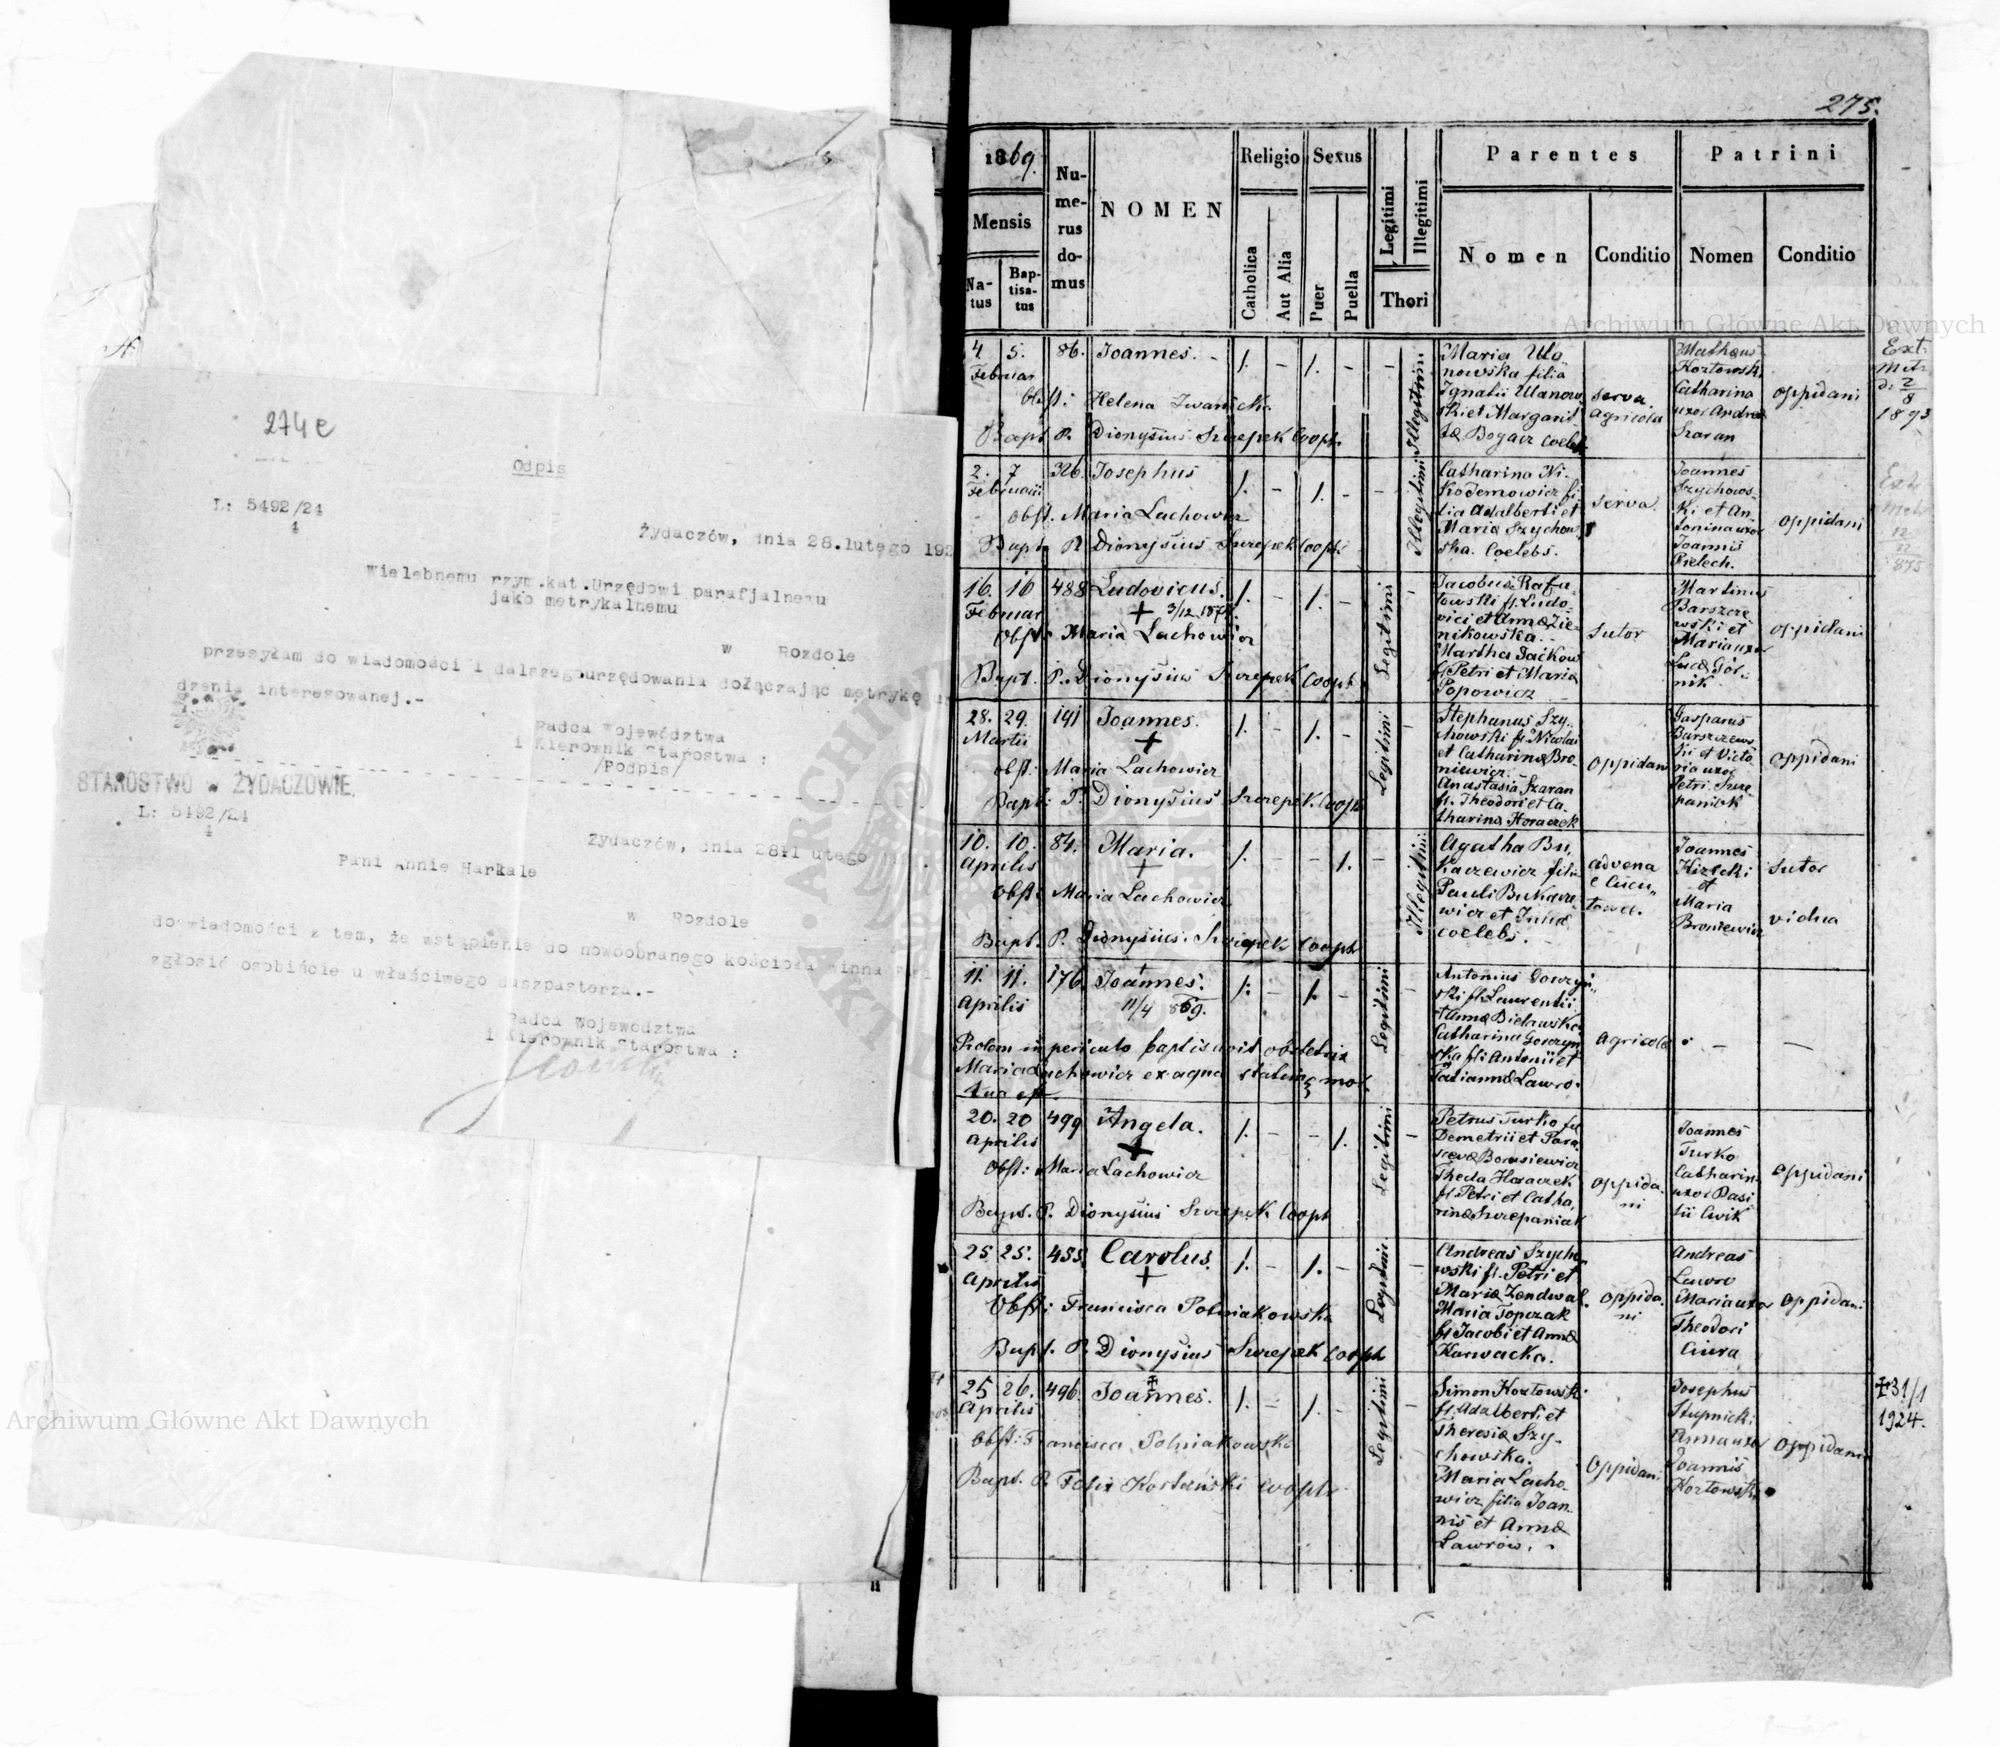 274e
Odpis
L: 5492/24
4
Żydaczów, dnia 28.lutego 192
Wielebnemu rzym.kat.Urzędowi parafjalnemu
jako metrykalnemu
w Rozdole
przesyłam do wiadomości i dalszego urzędowania dołączając metrykę u
dzenia interesowanej.-
Radca Województwa
i Kierownik Starostwa :
/Podpis/
STAROSTWO w ŻYDACZOWIE.
L: 5492/24
4
Żydaczów, dnia 28 lutego
Pani Annie Harkale
w Rozdole
do wiadomości z tem, że wstąpienie do nowoobranego kościoła winna Pani
zgłosić osobiście u właściwego duszpasterza.-
Radca Województwa
i Kierownik Starostwa :
275.
1869.
Mensis
Na-
tus
Bap-
tisa-
tus
Nu-
me-
rus
do-
mus
NOMEN
Religio
Catholica
Aut Alia
Sexus
Puer
Puella
Legitimi
Illegitimi
Thori
Parentes
Nomen
Conditio
Patrini
Nomen
Conditio
4 5. 86. Joannes. 1. - 1. - -
Februar
Obst: Helena Iwanicka
Bapt. P. Dionysius Szczepek Coop.
Illegitimi
Maria Ula
nowska filia
Ignatii Ulanow
ski et Margarit
æ Bogacz Coelebs
serva
agricola
Mathæus
Kozłowski
Catharina
uxor Andreæ
Szaran
oppidani
Ext:
Metr
d: 2/8
1893
2. 7 326. Josephus 1. - 1. - -
Februarii
Obst. Maria Lachowicz
Bapt. P. Dionysius Szczepek Coop:
Illegitimi
Catharina Ni-
kodemowicz fi-
lia Adalberti et
Maria Szychow
ska. Coelebs.
serva.
Joannes
Szychows-
ki et An-
tonina uxor
Joannis
Pielech.
oppidani
Ext
Metr
12
11
875
16. 16 488 Ludovicus. 1. - 1. - -
Februar + 3/12 187
Obst: Maria Lachowicz
Bapt. P. Dionysius Szczepek Coop
Legitimi
Jacobus Rafa-
łowski fil. Ludo-
vici et Annæ Zie-
nikowska.
Martha Jaćkow
f. Petri et Maria
Popowicz
sutor
Martinus
Barszcze
wski et
Maria uxor
Lucæ Gór-
nik
oppidani
28. 29. 141 Joannes. 1. - 1. - -
Martii +
Obst: Maria Lachowicz
Bapt: P. Dionysius Szczepek Coop
Legitimi
Stephanus Szy-
chowski fil. Nicolai
et Catharinæ Bro-
niewicz.
Anastasia Szaran
fil. Theodori et Ca-
tharinæ Horaczek
oppidani
Gasparus
Barszczews
ki et Victo
ria uxor
Petri Szcze
paniak
oppidani
10. 10. 84. Maria. 1. - - 1. -
Aprilis +
Obst: Maria Lachowicz
Bapt. P. Dionysius Szczepek Coop
Illegitimi
Agatha Bu
kaczewicz filia
Pauli Bukacze-
wicz et
coelebs.
advena
e Cucu-
Joannes
et
Maria
Broniewicz
sutor
vidua
11. 11. 176. Joannes. 1. - 1. - -
Aprilis 11/4 869.
Prolem in periculo baptisavit obstetrix
Maria Lachowicz ex aqua statim mor-
tua est.
Legitimi
Antonius Gorczyń-
ski fil. Laurentii
et Annæ Bielawska
Catharina Gorczyń
ska fil. Antonii et
Tatiannæ Lawro.
agricola - -
20. 20 499 Angela. 1. - - 1. -
Aprilis +
Obst: Maria Lachowicz
Bapt. P. Dionysius Szczepek Coop
Legitimi
Petrus Turko fil
Demetrii et Para
scevæ Borusiewicz
Thecla Horaczek
fil. Petri et Catha
rinæ Szczepaniak
oppida-
ni
Joannes
Turko
Catharina
uxor Basi
lii Cwik
oppidani
25 25. 455. Carolus. 1. - 1. - -
Aprilis +
Obst: Francisca Polniakowska
Bapt. P. Dionysius Szczepek Coop
Legitimi
Andreas Szycho-
wski fil. Petri et
Mariæ
Maria Topczak
fil. Jacobi et Annæ
Karwacka.
oppida-
ni
Andreas
Lawro
Maria uxor
Theodori
Ciura
oppidani
25 26. 496. Joannes. 1. - 1. - -
Aprilis
Obst: Francisca Polniakowska
Bapt. P. Felix Coop
Legitimi
Simon Kozłowski
fil. Adalberti et
Theresiæ Szy-
chowska.
Maria Lacho-
wicz filia Joan-
nis et Annæ
Lawrow.
oppidani
Josephus
Stupnicki
Anna uxor
Joannis
Kozłowski
oppidani
+31/1
1924.
Archiwum Główne Akt Dawnych
Archiwum Główne Akt Dawnych